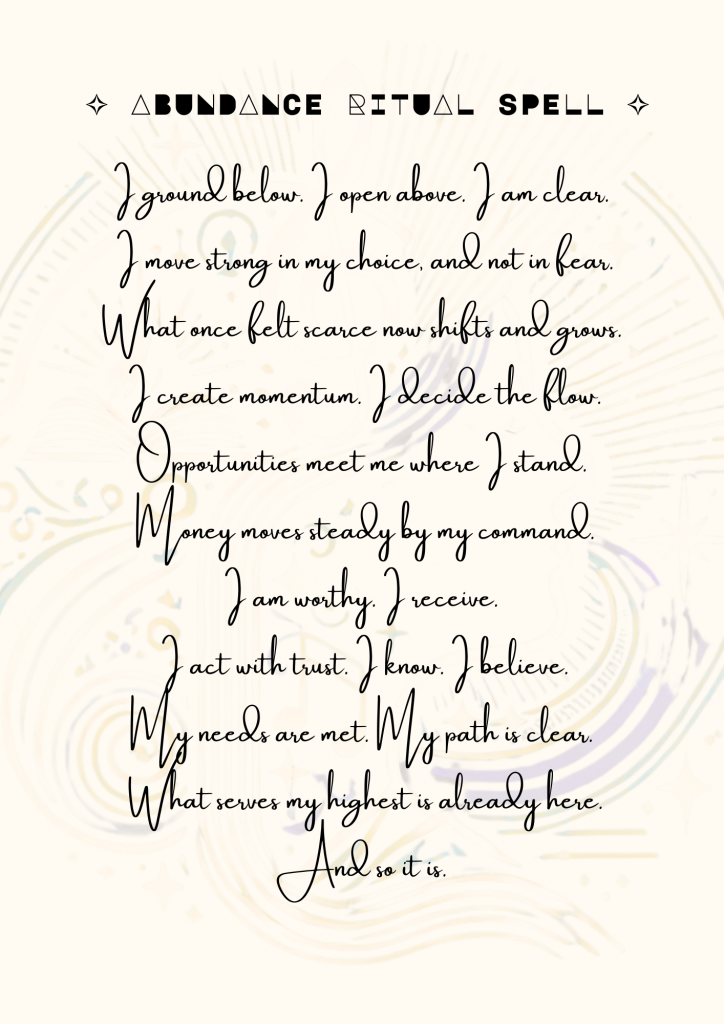 ✧ ABUNDANCE RITUAL SPELL ✧
I ground below. I open above. I am clear.
I move strong in my choice, and not in fear.
What once felt scarce now shifts and grows.
I create momentum. I decide the flow.
Opportunities meet me where I stand.
Money moves steady by my command.
I am worthy. I receive.
I act with trust. I know. I believe.
My needs are met. My path is clear.
What serves my highest is already here.
And so it is.